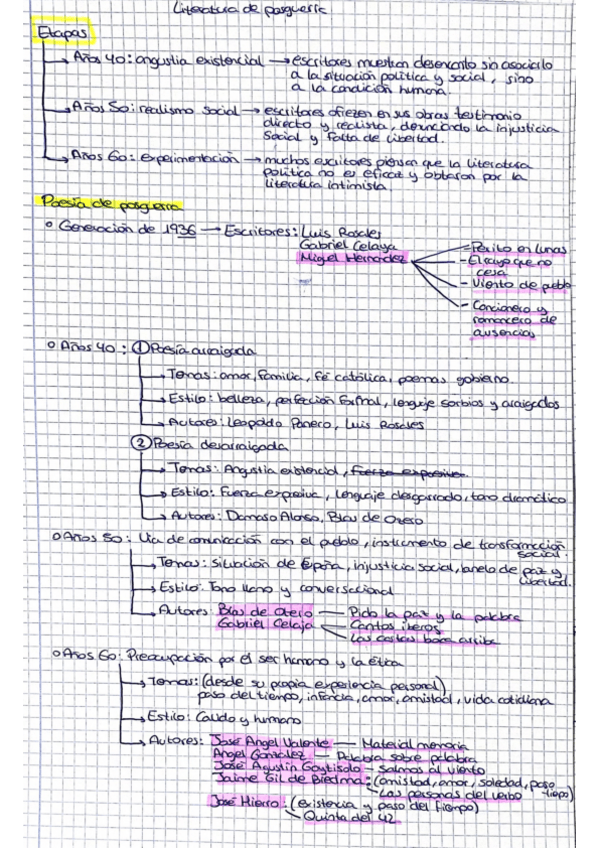 Literatura de posguerra
Etapas
Años 40: angustia existencial → escritores muestran desencanto sin asociarlo
a la situación política y social, sino
a la condición humana.
Años 50: realismo social → escritores ofrecen en sus obras testimonio
directo y realista, denunciando la injusticia
social y falta de libertad.
Años 60: experimentación → muchos escritores piensan que la literatura
política no es eficaz y optaron por la
literatura intimista.
Poesía de posguerra
Generación de 1936 → Escritores: Luis Rosales
Gabriel Celaya
Miguel Hernández
- Perito en lunas
- El rayo que no
cesa
- Viento de pueblo
- Cancionero y
romancero de
ausencias
Años 40: ① Poesía arraigada
Temas: amor, familia, fé católica, poemas gobierno.
Estilo: belleza, perfección formal, lenguaje sobrios y arraigados
Autores: Leopoldo Panero, Luis Rosales
② Poesía desarraigada
Temas: Angustia existencial, fuerza expresiva.
Estilo: Fuerza expresiva, lenguaje desgarrado, tono dramático
Autores: Damaso Alonso, Blas de Otero
Años 50: Vía de comunicación con el pueblo, instrumento de transformación
social.
Temas: situación de España, injusticia social, anelo de paz y
libertad.
Estilo: Tono llano y conversacional
Autores: Blas de Otero — Pido la paz y la palabra
Gabriel Celaya — Cantos iberos
Las cartas boca arriba
Años 60: Preocupación por el ser humano y la ética
Temas: (desde su propia experiencia personal)
paso del tiempo, infancia, amor, amistad, vida cotidiana
Estilo: Calido y humano
Autores: José Angel Valente — Material memoria
Angel González — Palabra sobre palabra
José Agustín Goytisolo — Salmos al viento
Jaime Gil de Biedma: (amistad, amor, soledad, paso
tiempo)
Las personas del verbo
José Hierro: (existencia y paso del tiempo)
Quinta del 42